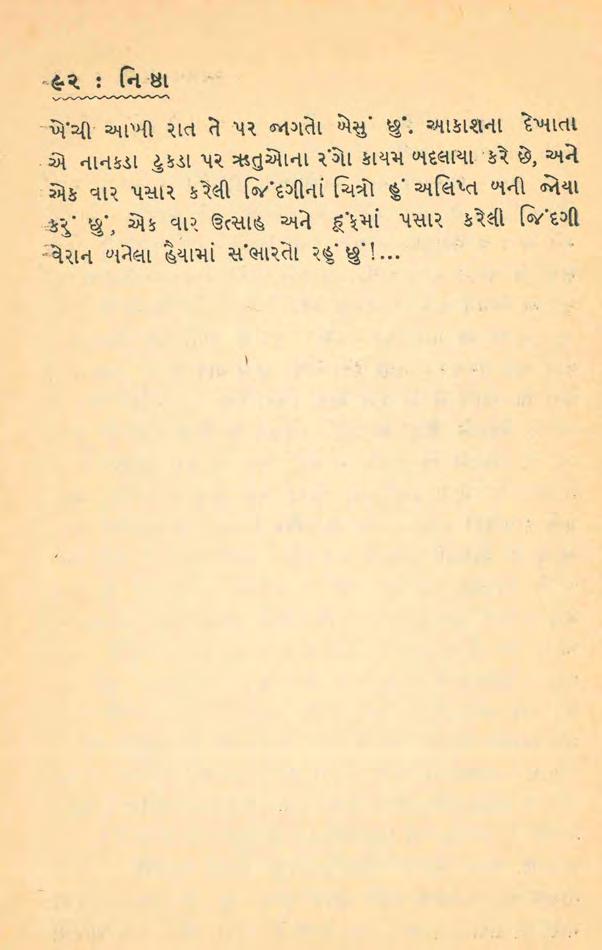 ૯૨ : નિષ્ઠા
ખેંચી આખી રાત તે પર જાગતો બેસું છું. આકાશના દેખાતા
એ નાનકડા ટુકડા પર ઋતુઓના રંગો કાયમ બદલાયા કરે છે, અને
એક વાર પસાર કરેલી જિંદગીનાં ચિત્રો હું અલિપ્ત બની જોયા
કરું છું, એક વાર ઉત્સાહ અને હૂંફમાં પસાર કરેલી જિંદગી
વેરાન બનેલા હૈયામાં સંભારતો રહું છું!...